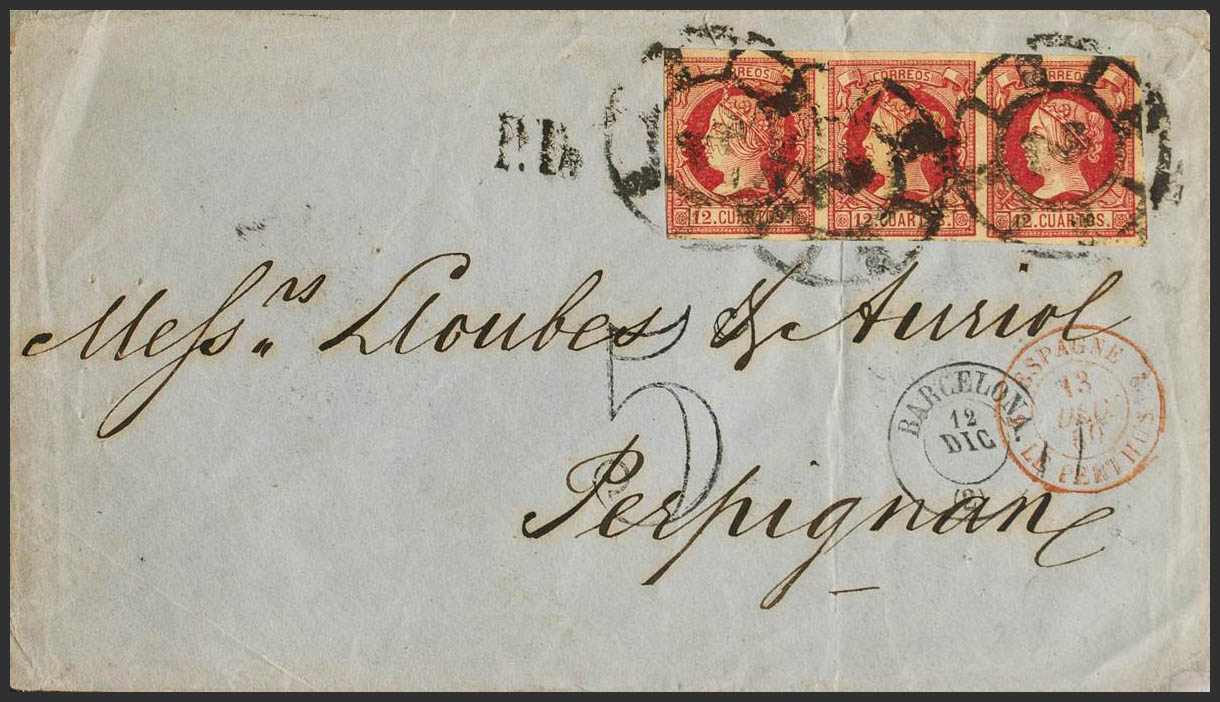 CORREOS CORREOS CORREOS
P.D.
12. CUARTOS. 12 CUARTOS. 12. CUARTOS.
Mess.rs Lloubes & Auriol
5
BARCELONA.
12
DIC
(2)
ESPAGNE
13
DEC.
60
LE PERTHUS
Perpignan